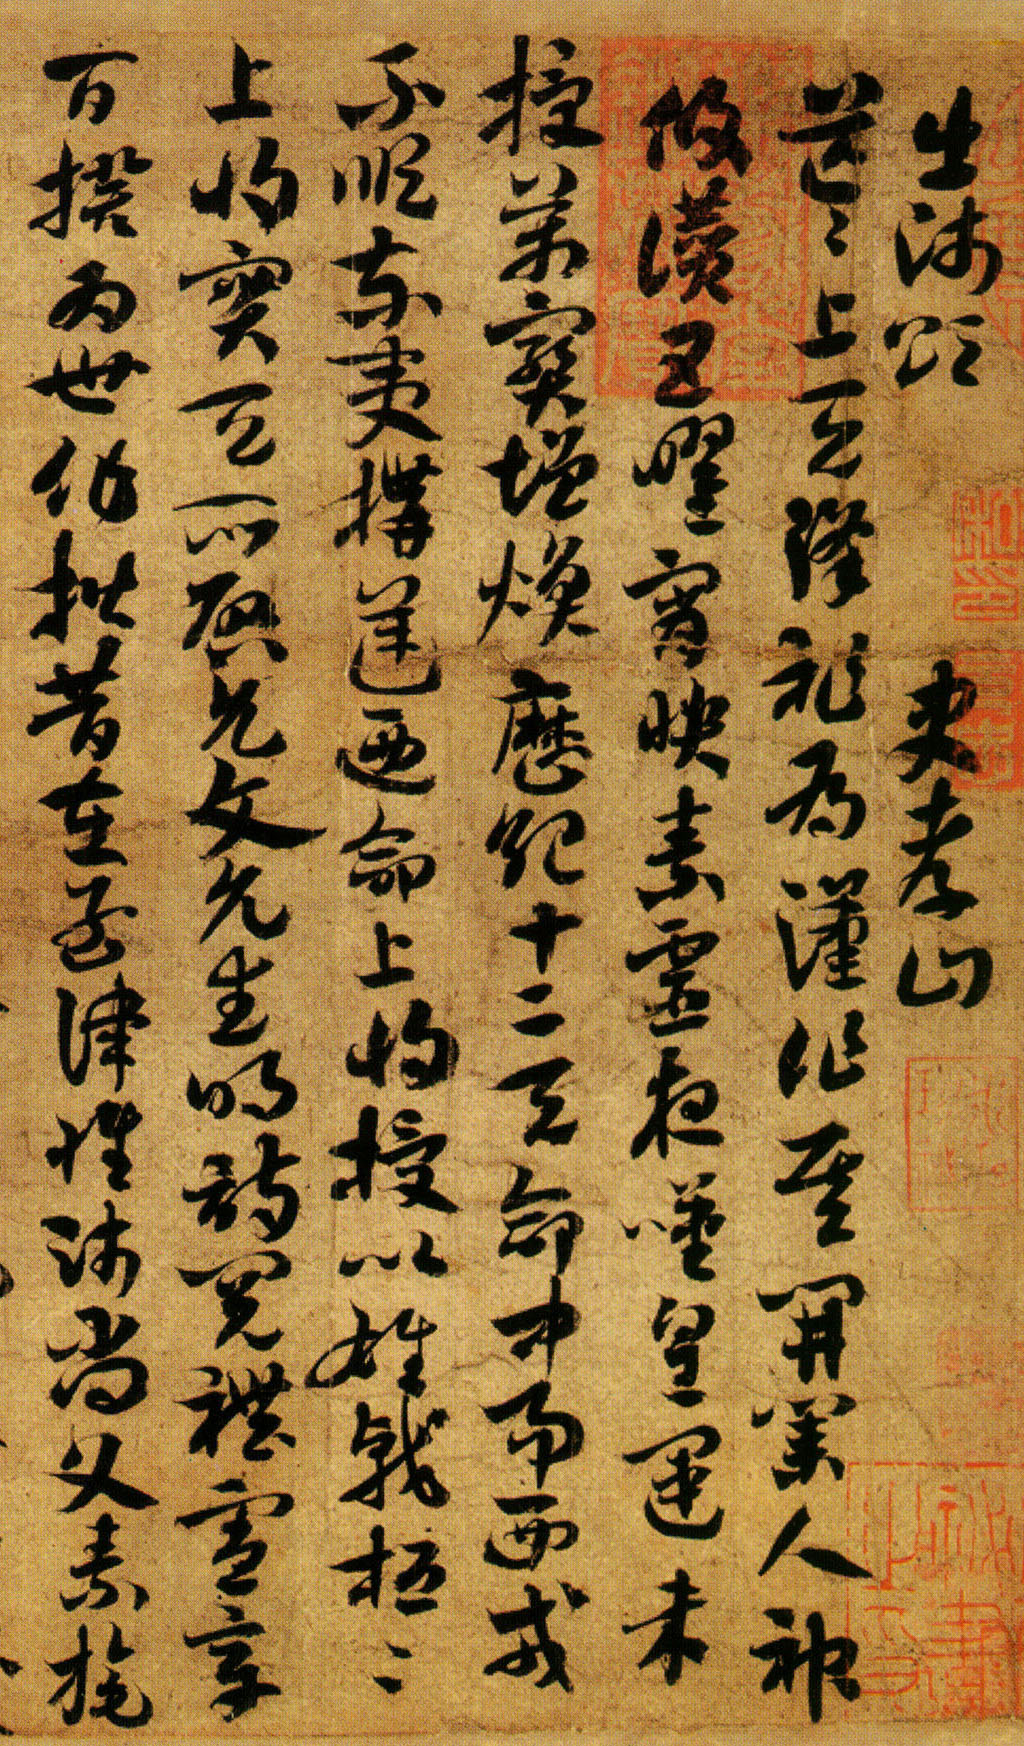 出師頌 史孝山
茫〻上天降祚為漢作基開業人神
攸讚五曜宵映素靈夜嘆皇運未
授萬寶增煥歷紀十二天命中易西戎
不順東夷構逆乃命上將授以雄戟桓〻
上將寔天所啟允文允武明詩閱禮憲章
百揆為世作楷昔在孟津惟師尚父素旄